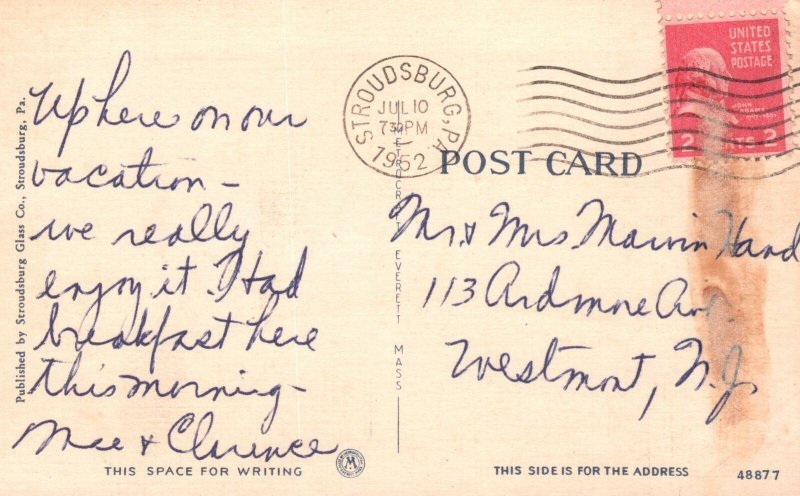 Up here on our
vacation –
we really
enjoy it. Had
breakfast here
this morning –
Mae & Clarence
THIS SPACE FOR WRITING
Published by Stroudsburg Glass Co., Stroudsburg, Pa.
METROCRAFT EVERETT MASS
STROUDSBURG, PA.
JUL 10
7 30 PM
1952
UNITED
STATES
POSTAGE
JOHN
ADAMS
2 2
POST CARD
Mr & Mrs Marvin Hand
113 Ardmore Ave.
Westmont, N.J.
THIS SIDE IS FOR THE ADDRESS
48877